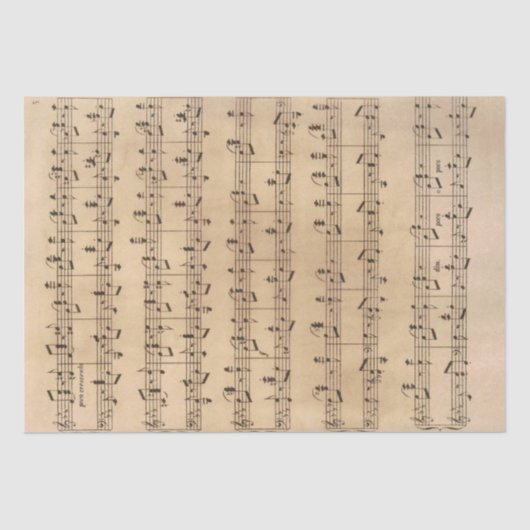 poco crescendo
dim. poco a poco